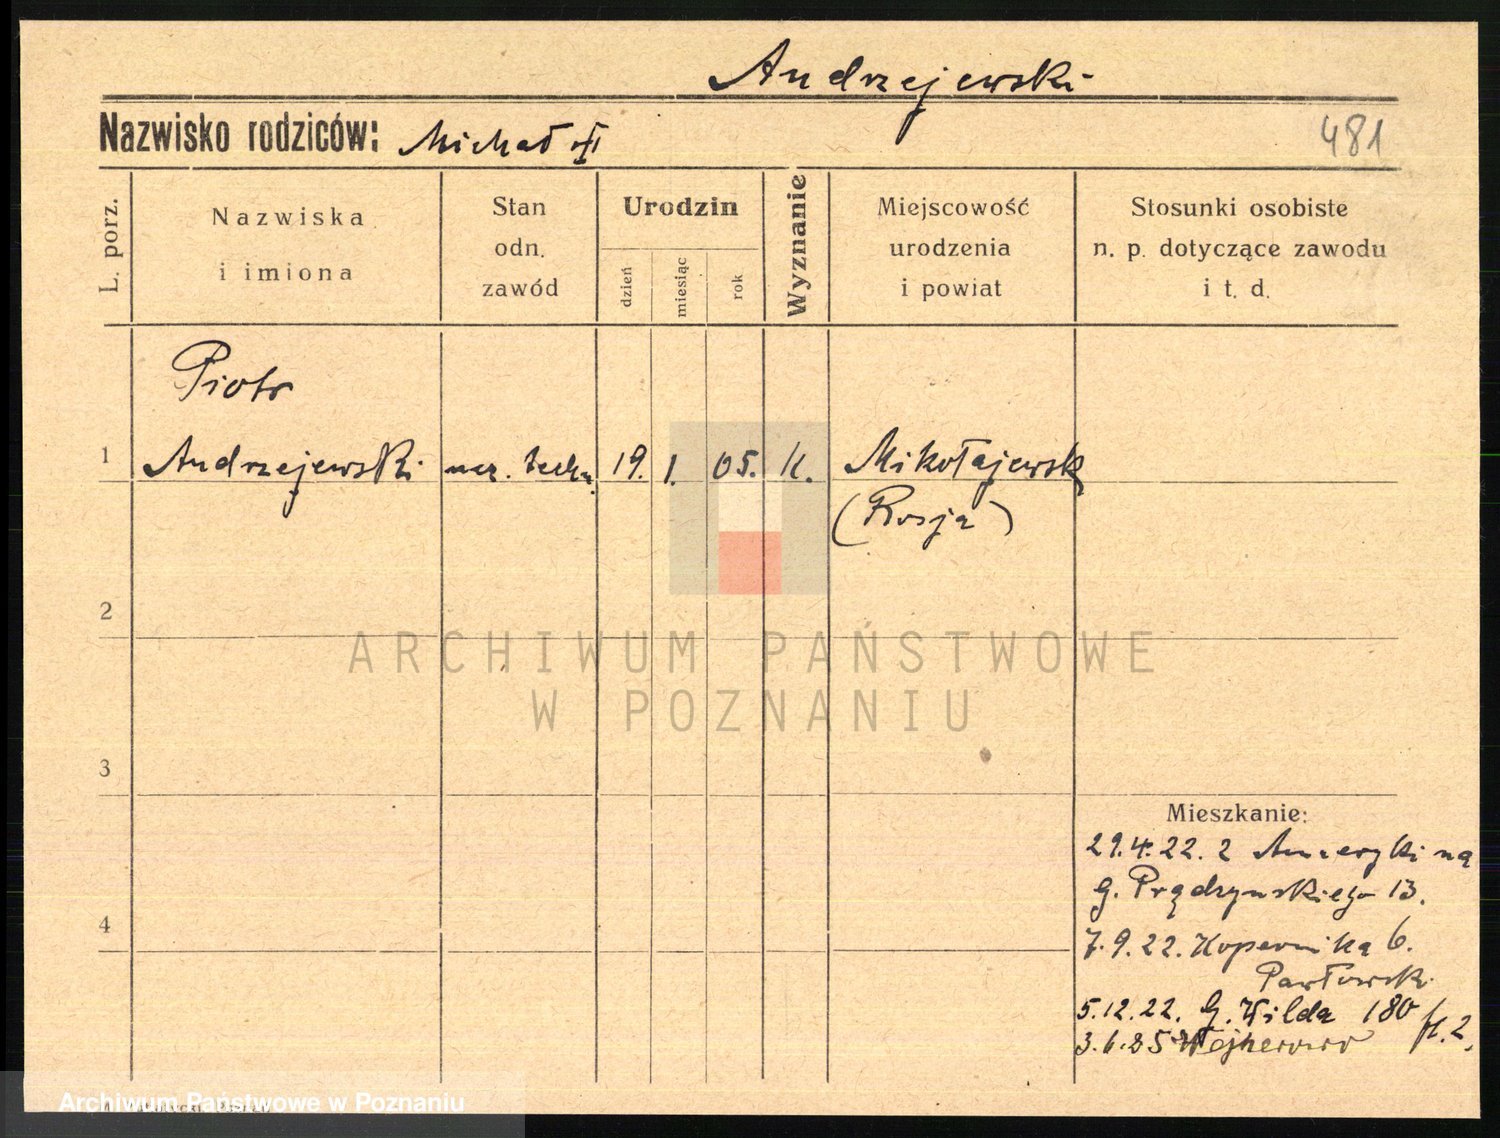 Andrzejewski
Nazwisko rodziców: Michał
481
L. porz.
Nazwiska
i imiona
Stan
odn.
zawód
Urodzin
dzień
miesiąc
rok
Wyznanie
Miejscowość
urodzenia
i powiat
Stosunki osobiste
n. p. dotyczące zawodu
i t. d.
Piotr
1 Andrzejewski ucz. techn. 19. 1. 05. K. Mikołajewsk
(Rosja)
2
ARCHIWUM PAŃSTWOWE
W POZNANIU
3
Mieszkanie:
29.4.22. z Ameryki na
G. Prądzyńskiego 13.
4
7.9.22. Kopernika 6.
Pawłowski
5.12.22. G. Wilda 180
3.6.25 Wejherowo
Archiwum Państwowe w Poznaniu